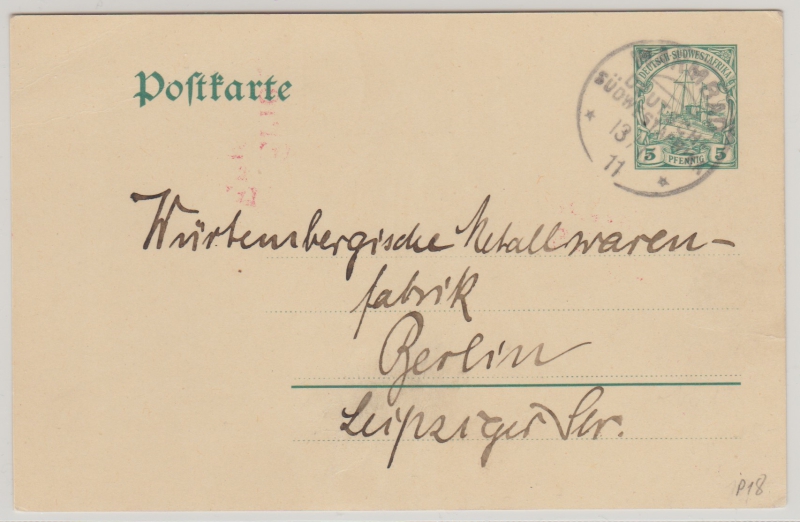 Postkarte
DEUTSCH-SÜDWESTAFRIKA
5 PFENNIG 5
DEUTSCH
SÜDWESTAFRIKA
13
11
Würtembergische Metallwaren-
fabrik
Berlin
Leipziger Str.
P18